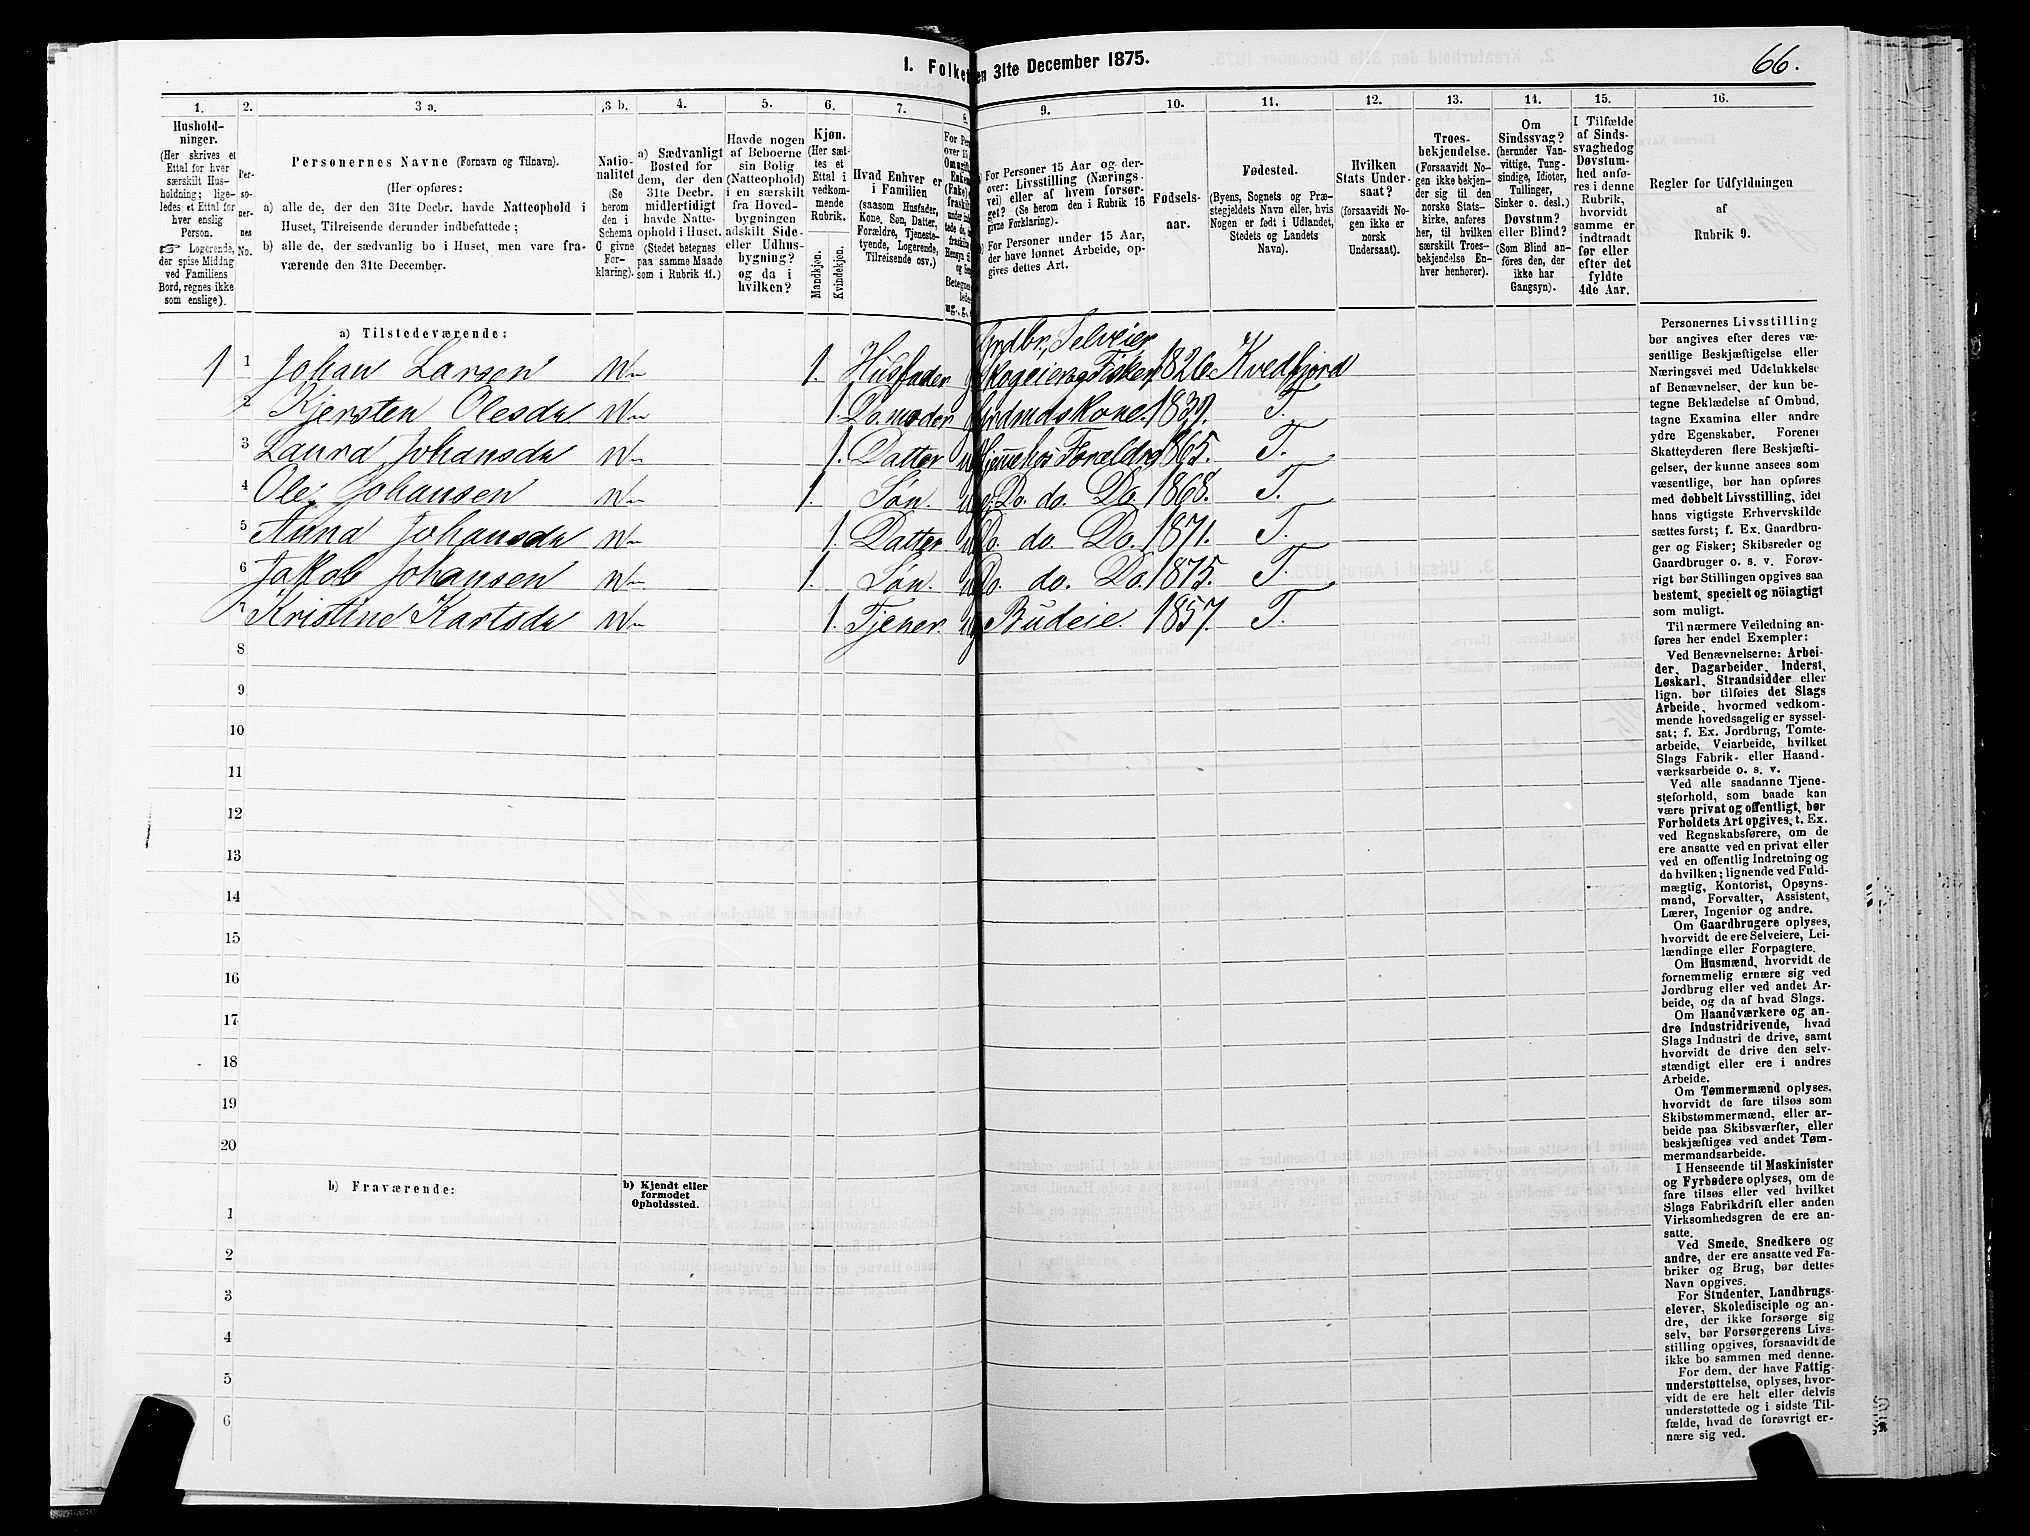 I. Folket
en 31te December 1875.
66.
1. 2. 3 a. 3 b. 4. 5. 6. 7. 8. 9. 10. 11. 12. 13. 14. 15. 16.
Hushold-
ninger.
(Her skrives et
Ettal for hver
særskilt Hus-
holdning; lige-
ledes et Ettal for
hver enslig
Person.
☞ Logerende,
der spise Middag
ved Familiens
Bord, regnes ikke
som enslige).
Per-
so-
ner-
nes
No.
Personernes Navne (Fornavn og Tilnavn).
(Her opføres:
a) alle de, der den 31te Decbr. havde Natteophold i
Huset, Tilreisende derunder indbefattede;
b) alle de, der sædvanlig bo i Huset, men vare fra-
værende den 31te December.
Natio-
nalitet
(Se
herom
den i
Schema
C givne
For-
klaring).
a) Sædvanligt
Bosted for
dem, der den
31te Decbr.
midlertidigt
havde Natte-
ophold i Huset.
(Stedet betegnes
paa samme Maade
som i Rubrik 11.)
Havde nogen
af Beboerne
sin Bolig
(Natteophold)
i en særskilt
fra Hoved-
bygningen
adskilt Side-
eller Udhus-
bygning?
og da i
hvilken?
Kjøn.
(Her sæt-
tes et
Ettal i
vedkom-
mende
Rubrik.
Mandkjøn.
Kvindekjøn.
Hvad Enhver er
i Familien
(saasom Husfader,
Kone, Søn, Datter,
Forældre, Tjeneste-
tyende, Logerende,
Tilreisende osv.)
a) For Personer 15 Aar og der-
over: Livsstilling (Nærings-
vei) eller af hvem forsør-
get? (Se herom i Rubrik 16
givne Forklaring).
b) For Personer under 15 Aar,
der have lønnet Arbeide, op-
gives dettes Art.
Fødsels-
aar.
Fødested.
(Byens, Sognets og Præ-
stegjeldets Navn eller, hvis
Nogen er født i Udlandet,
Stedets og Landets
Navn).
Hvilken
Stats Under-
saat?
(forsaavidt No-
gen ikke er
norsk
Undersaat).
Troes-
bekjendelse.
(Forsaavidt No-
gen ikke bekjen-
der sig til den
norske Stats-
kirke, anføres
her, til hvilken
særskilt Troes-
bekjendelse En-
hver henhører).
Om
Sindssvag?
(herunder Van-
vittige, Tung-
sindige, Idioter,
Tullinger,
Sinker o. desl.)
Døvstum?
eller Blind?
(Som Blind an-
føres den, der
ikke har
Gangsyn).
I Tilfælde
af Sinds-
svaghed og
Døvstum-
hed anfø-
res i denne
Rubrik,
hvorvidt
samme er
indtraadt
før eller
efter det
fyldte
4de Aar.
Regler for Udfyldningen
af
Rubrik 9.
a) Tilstedeværende:
Grdbr. Selveier
1 1 Johan Larsen N 1. Husfader g Skogeier og Fisker 1826. Kvedfjord
2 Kjersten Olesda. N 1. Do. moder g Grdmdskone. 1839. T.
3 Laura Johansda N 1. Datter ug Hjemme hos Forældre 1865. T.
4 Ole Johansen N 1. Søn. ug. Do. do. Do. 1868. T.
5 Anna Johansda N 1. Datter ug Do. do. Do. 1871. T.
6 Jakob Johansen N 1. Søn. ug Do. do. Do. 1875. T.
7 Kristine Karlsda N 1. Tjener. ug Budeie. 1857. T.
8
9
10
11
12
13
14
15
16
17
18
19
20
b) Fraværende:
b) Kjendt eller
formodet
Opholdssted.
1
2
3
4
5
6
Personernes Livsstilling
bør angives efter deres væ-
sentlige Beskjæftigelse eller
Næringsvei med Udelukkelse
af Benævnelser, der kun be-
tegne Beklædelse af Ombud,
tagne Examina eller andre
ydre Egenskaber. Forener
Skatteyderen flere Beskjæfti-
gelser, der kunne ansees som
væsentlige, bør han opføres
med dobbelt Livsstilling, idet
hans vigtigste Erhvervskilde
sættes først; f. Ex. Gaardbru-
ger og Fisker; Skibsreder og
Gaardbruger o. s. v. Forøv-
rigt bør Stillingen opgives saa
bestemt, specielt og nöiagtigt
som muligt.
Til nærmere Veiledning an-
føres her endel Exempler:
Ved Benævnelserne: Arbei-
der, Dagarbeider, Inderst,
Løskarl, Strandsidder eller
lign. bør tilføies det Slags
Arbeide, hvormed vedkom-
mende hovedsagelig er syssel-
sat; f. Ex. Jordbrug, Tomte-
arbeide, Veiarbeide, hvilket
Slags Fabrik- eller Haand-
værksarbeide o. s. v.
Ved alle saadanne Tjene-
steforhold, som baade kan
være privat og offentligt, bør
Forholdets Art opgives, t. Ex.
ved Regnskabsførere, om de
ere ansatte ved en privat eller
ved en offentlig Indretning og
da hvilken; lignende ved Fuld-
mægtig, Kontorist, Opsyns-
mand, Forvalter, Assistent,
Lærer, Ingeniør og andre.
Om Gaardbrugere oplyses,
hvorvidt de ere Selveiere, Lei-
lændinge eller Forpagtere.
Om Husmænd, hvorvidt de
fornemmelig ernære sig ved
Jordbrug eller ved andet Ar-
beide, og da af hvad Slags.
Om Haandværkere og an-
dre Industridrivende, hvad
Slags Industri de drive, samt
hvorvidt de drive den selv-
stændigt eller ere i andres
Arbeide.
Om Tømmermænd oplyses,
hvorvidt de fare tilsøs som
Skibstømmermænd, eller ar-
beide paa Skibsværfter, eller
beskjæftiges ved andet Tøm-
mermandsarbeide.
I Henseende til Maskinister
og Fyrbødere oplyses, om de
fare tilsøs eller ved hvilket
Slags Fabrikdrift eller anden
Virksomhedsgren de ere an-
satte.
Ved Smede, Snedkere og
andre, der ere ansatte ved Fa-
briker og Brug, bør dettes
Navn opgives.
For Studenter, Landbrugs-
elever, Skoledisciple og an-
dre, der ikke forsørge sig
selv, bør Forsørgerens Livs-
stilling opgives, forsaavidt de
ikke bo sammen med denne.
For dem, der have Fattig-
understøttelse, oplyses, hvor-
vidt de ere helt eller delvis
understøttede og i sidste Til-
fælde, hvad de forøvrigt er-
nære sig ved.